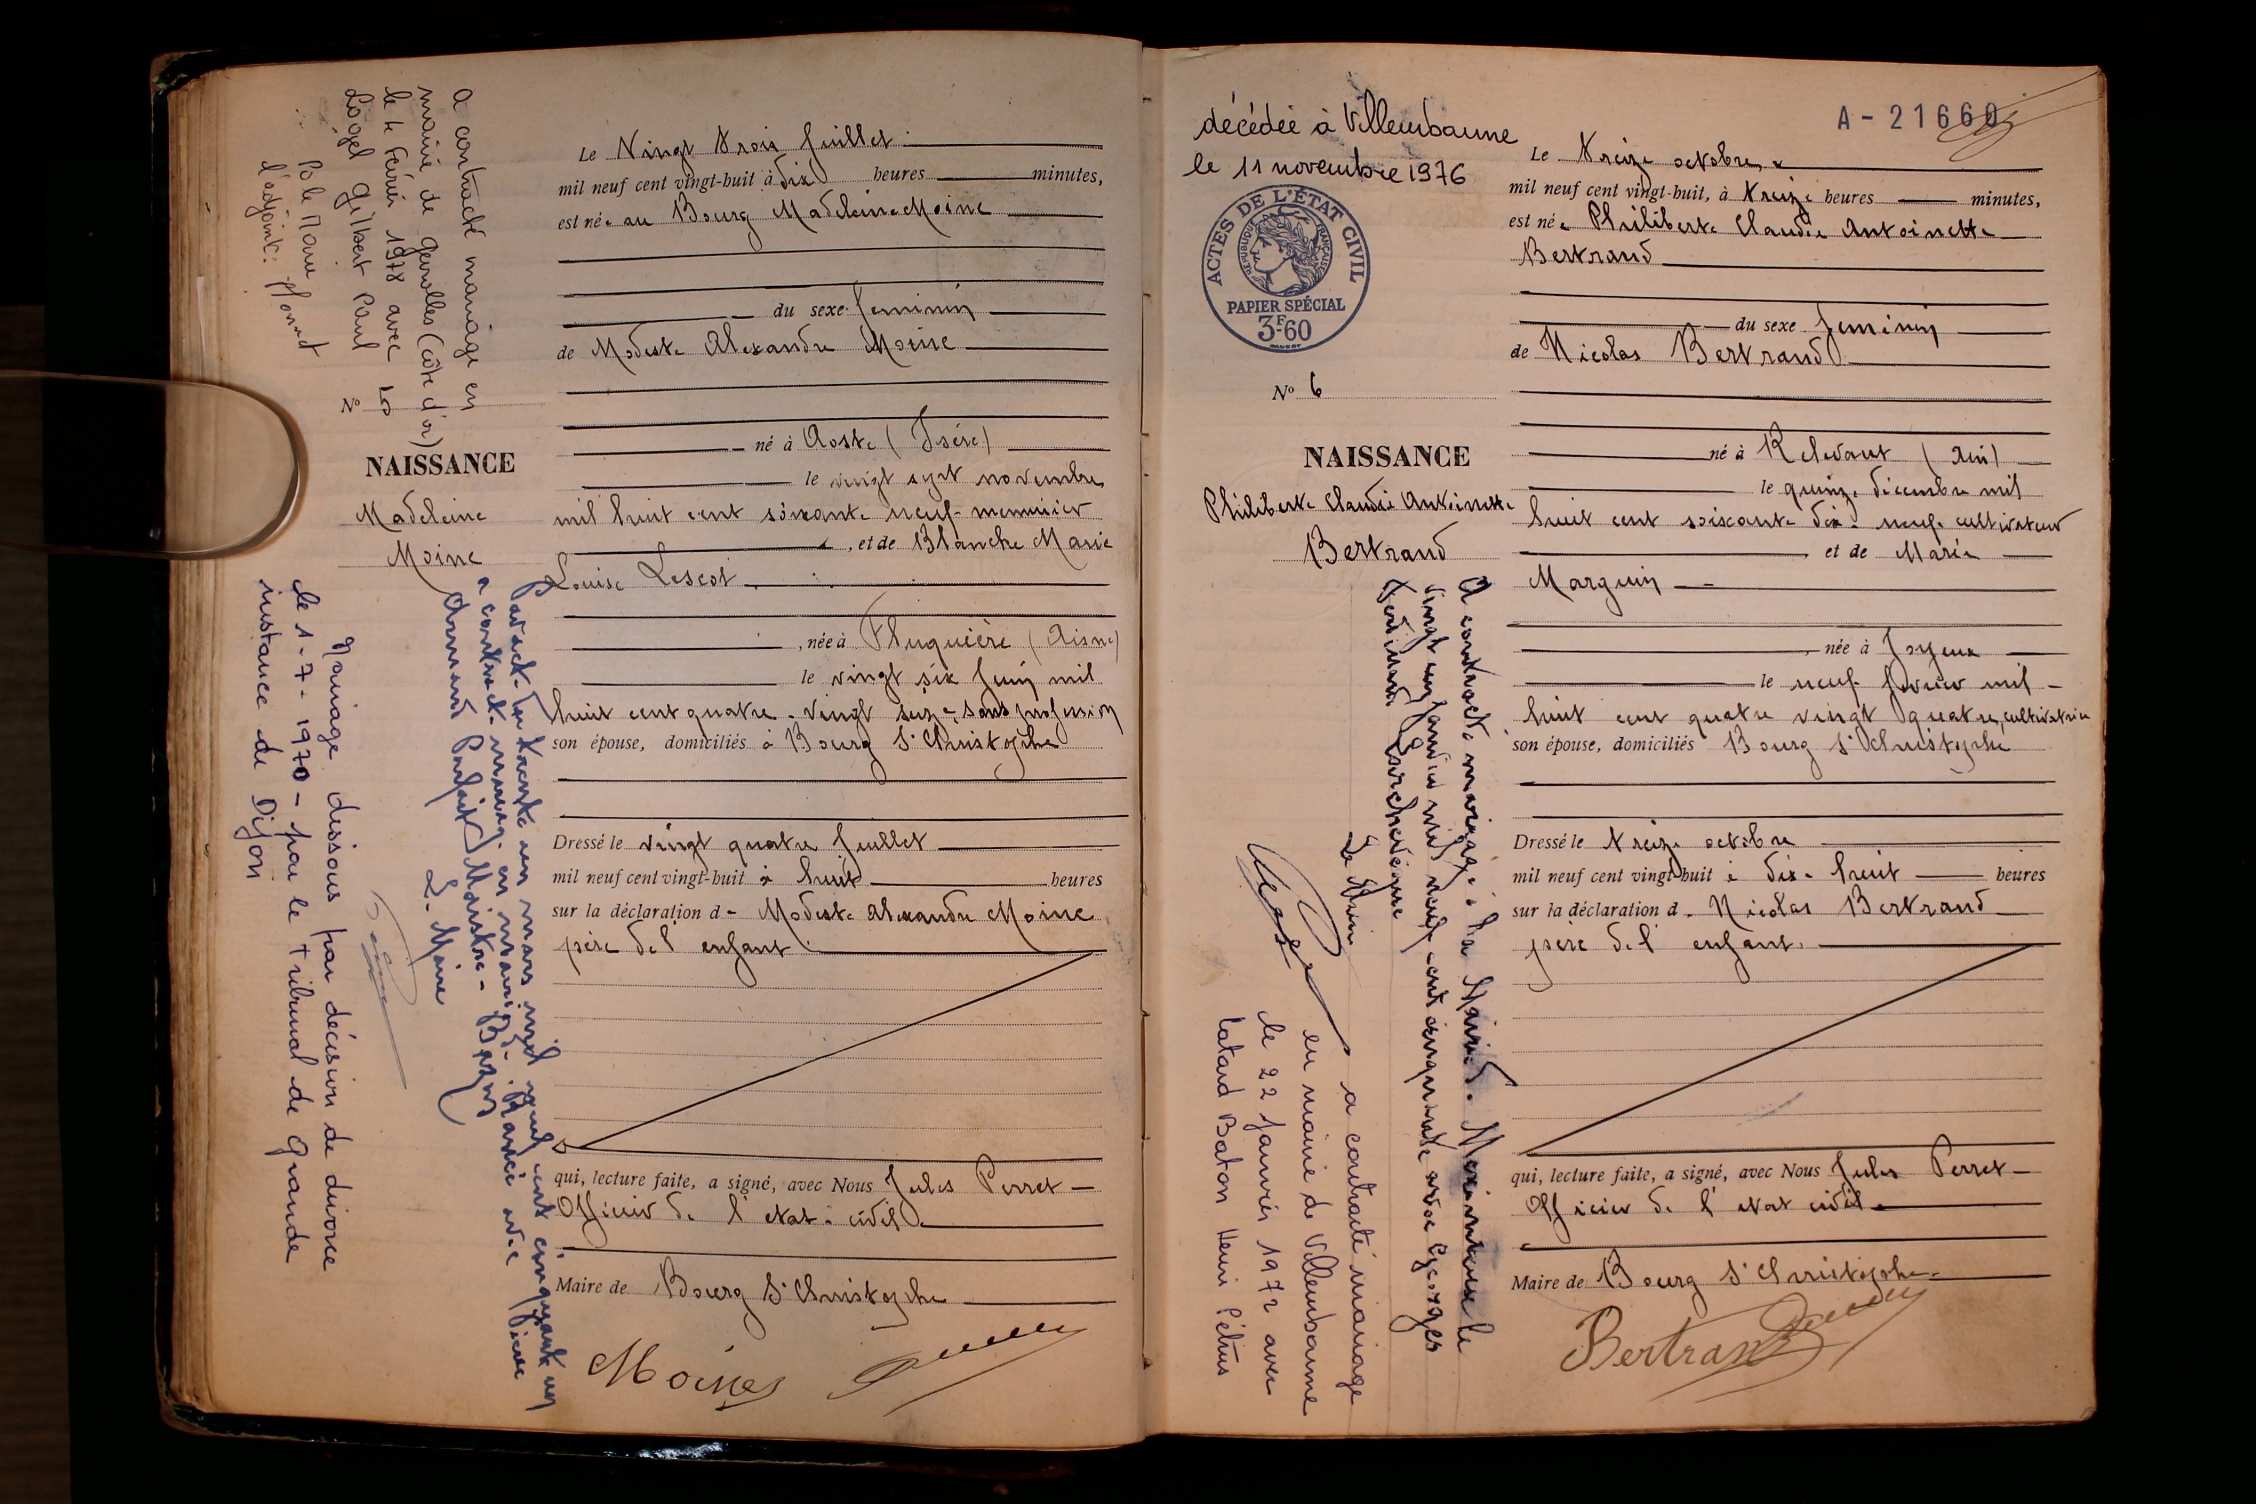 a contracté mariage en
mairie de Genolles (côte d'or)
le 4 Février 1978 avec
Lögel Gilbert Paul
Pole Marie
l'adjoint:
N° 5
NAISSANCE
Madeleine
Moine
Par acte du trente un mars mil neuf cent cinquante un
a contracté mariage en mairie. Marié avec Pierre
Armand Parfait Maistre - Bazin
Le Maire
Mariage dissous par décision de divorce
le 1-7-1970 - par le tribunal de Grande
instance de Dijon
Le Vingt trois Juillet
mil neuf cent vingt-huit à dix heures minutes,
est née au Bourg Madeleine Moine
du sexe feminin
de Modeste Alexandre Moine
né à Aoste (Isére)
le vingt sept novembre
mil huit cent soixante neuf menuisier
, et de Blanche Marie
Louise Lescot
, née à Fluquière (Aisne)
le vingt six Juin mil
huit cent quatre-vingt seize, sans profession
son épouse, domiciliés à Bourg St Christophe
Dressé le vingt quatre Juillet
mil neuf cent vingt-huit à huit heures
sur la déclaration de Modeste Alexandre Moine
père de l'enfant
qui, lecture faite, a signé, avec Nous Jules Perret
Officier de l'etat civil
Maire de Bourg St Christophe
Moine
décédée à Villeurbanne
le 11 novembre 1976
ACTES DE L'ÉTAT CIVIL
RÉPUBLIQUE FRANÇAISE
PAPIER SPÉCIAL
3F60
N° 6
NAISSANCE
Philiberte Claudie Antoinette
Bertrand
A contracté mariage à la Mairie de Meximieux le
vingt un janvier mil neuf cent cinquante avec Georges
Ferdinand
Le Maire
a contracté mariage
en mairie de Villeurbanne
le 22 Janvier 1972 avec
Catard Baton Henri Pétrus
A - 21660
Le treize octobre
mil neuf cent vingt-huit, à treize heures minutes,
est née Philiberte Claudie Antoinette
Bertrand
du sexe feminin
de Nicolas Bertrand
né à Relevant (Ain)
le quinze décembre mil
huit cent soixante dix-neuf cultivateur
et de Marie
Marguin
, née à Joyeux
le neuf février mil
huit cent quatre vingt quatre, cultivatrice
son épouse, domiciliés Bourg St Christophe
Dressé le treize octobre
mil neuf cent vingt-huit à dix-huit heures
sur la déclaration de Nicolas Bertrand
père de l'enfant.
qui, lecture faite, a signé, avec Nous Jules Perret
Officier de l'etat civil
Maire de Bourg St Christophe
Bertrand